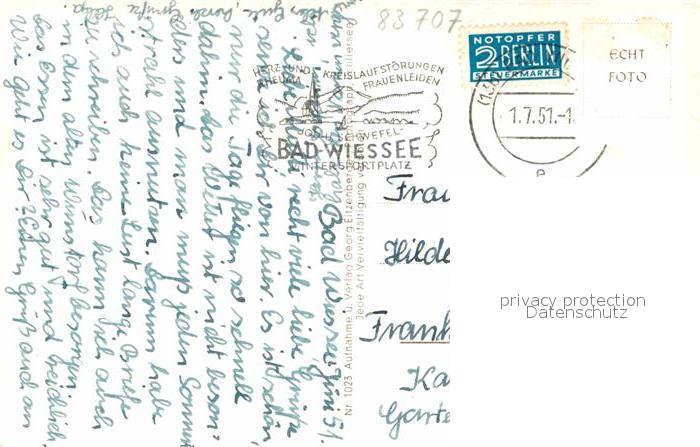 83 707
NOTOPFER
2 BERLIN
STEUERMARKE
ECHT
FOTO
HERZ- UND KREISLAUFSTÖRUNGEN
RHEUMA FRAUENLEIDEN
JOD- U. SCHWEFEL-
BAD WIESSEE
WINTERSPORTPLATZ
1.7.51.-1
Frau
Hilde
Frank
Ka
Garte
privacy protection
Datenschutz
Nr. 1023 Aufnahme u. Verlag Georg Etzenberger
Jede Art Vervielfältigung
Bad Wiessee, Juni 51.
recht viel liebe Grüße
Dir von hier. Es ist schön,
nur die Tage fliegen so schnell
dahin. das Wetter ist nicht beson-
ders und man muß jeden Sonnen
strahl ausnutzen. Darum habe
ich auch keine Lust lange Briefe
zu schreiben. Das kann ich auch
in dem alten besorgen.
Das Essen ist sehr gut und reichlich.
Wie geht es Dir? Einen Gruß auch an